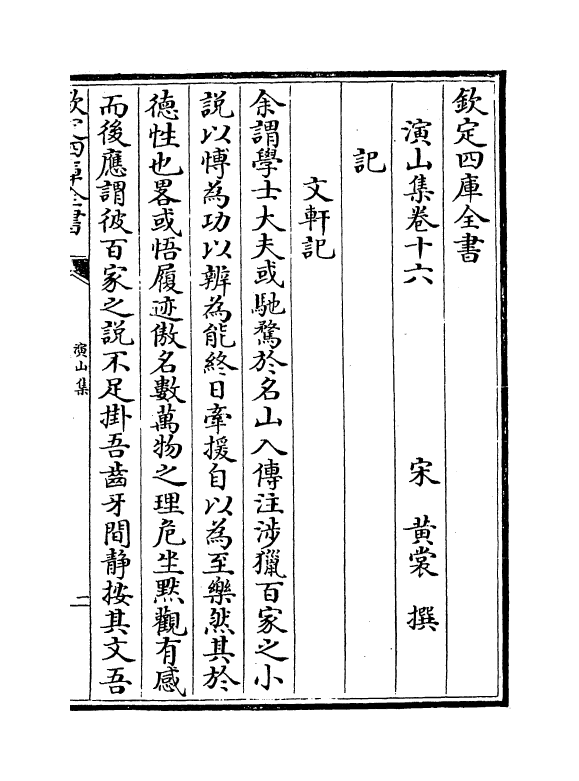 欽定四庫全書
演山集卷十六
宋 黄裳 撰
記
文軒記
余謂學士大夫或馳騖於名山入傳注涉獵百家之小
説以愽為功以辨為能終日牽援自以為至樂然其於
德性也畧或悟履迹傲名數萬物之理危坐黙觀有感
而後應謂彼百家之説不足掛吾齒牙間静按其文吾
欽定四庫全書
演山集
二